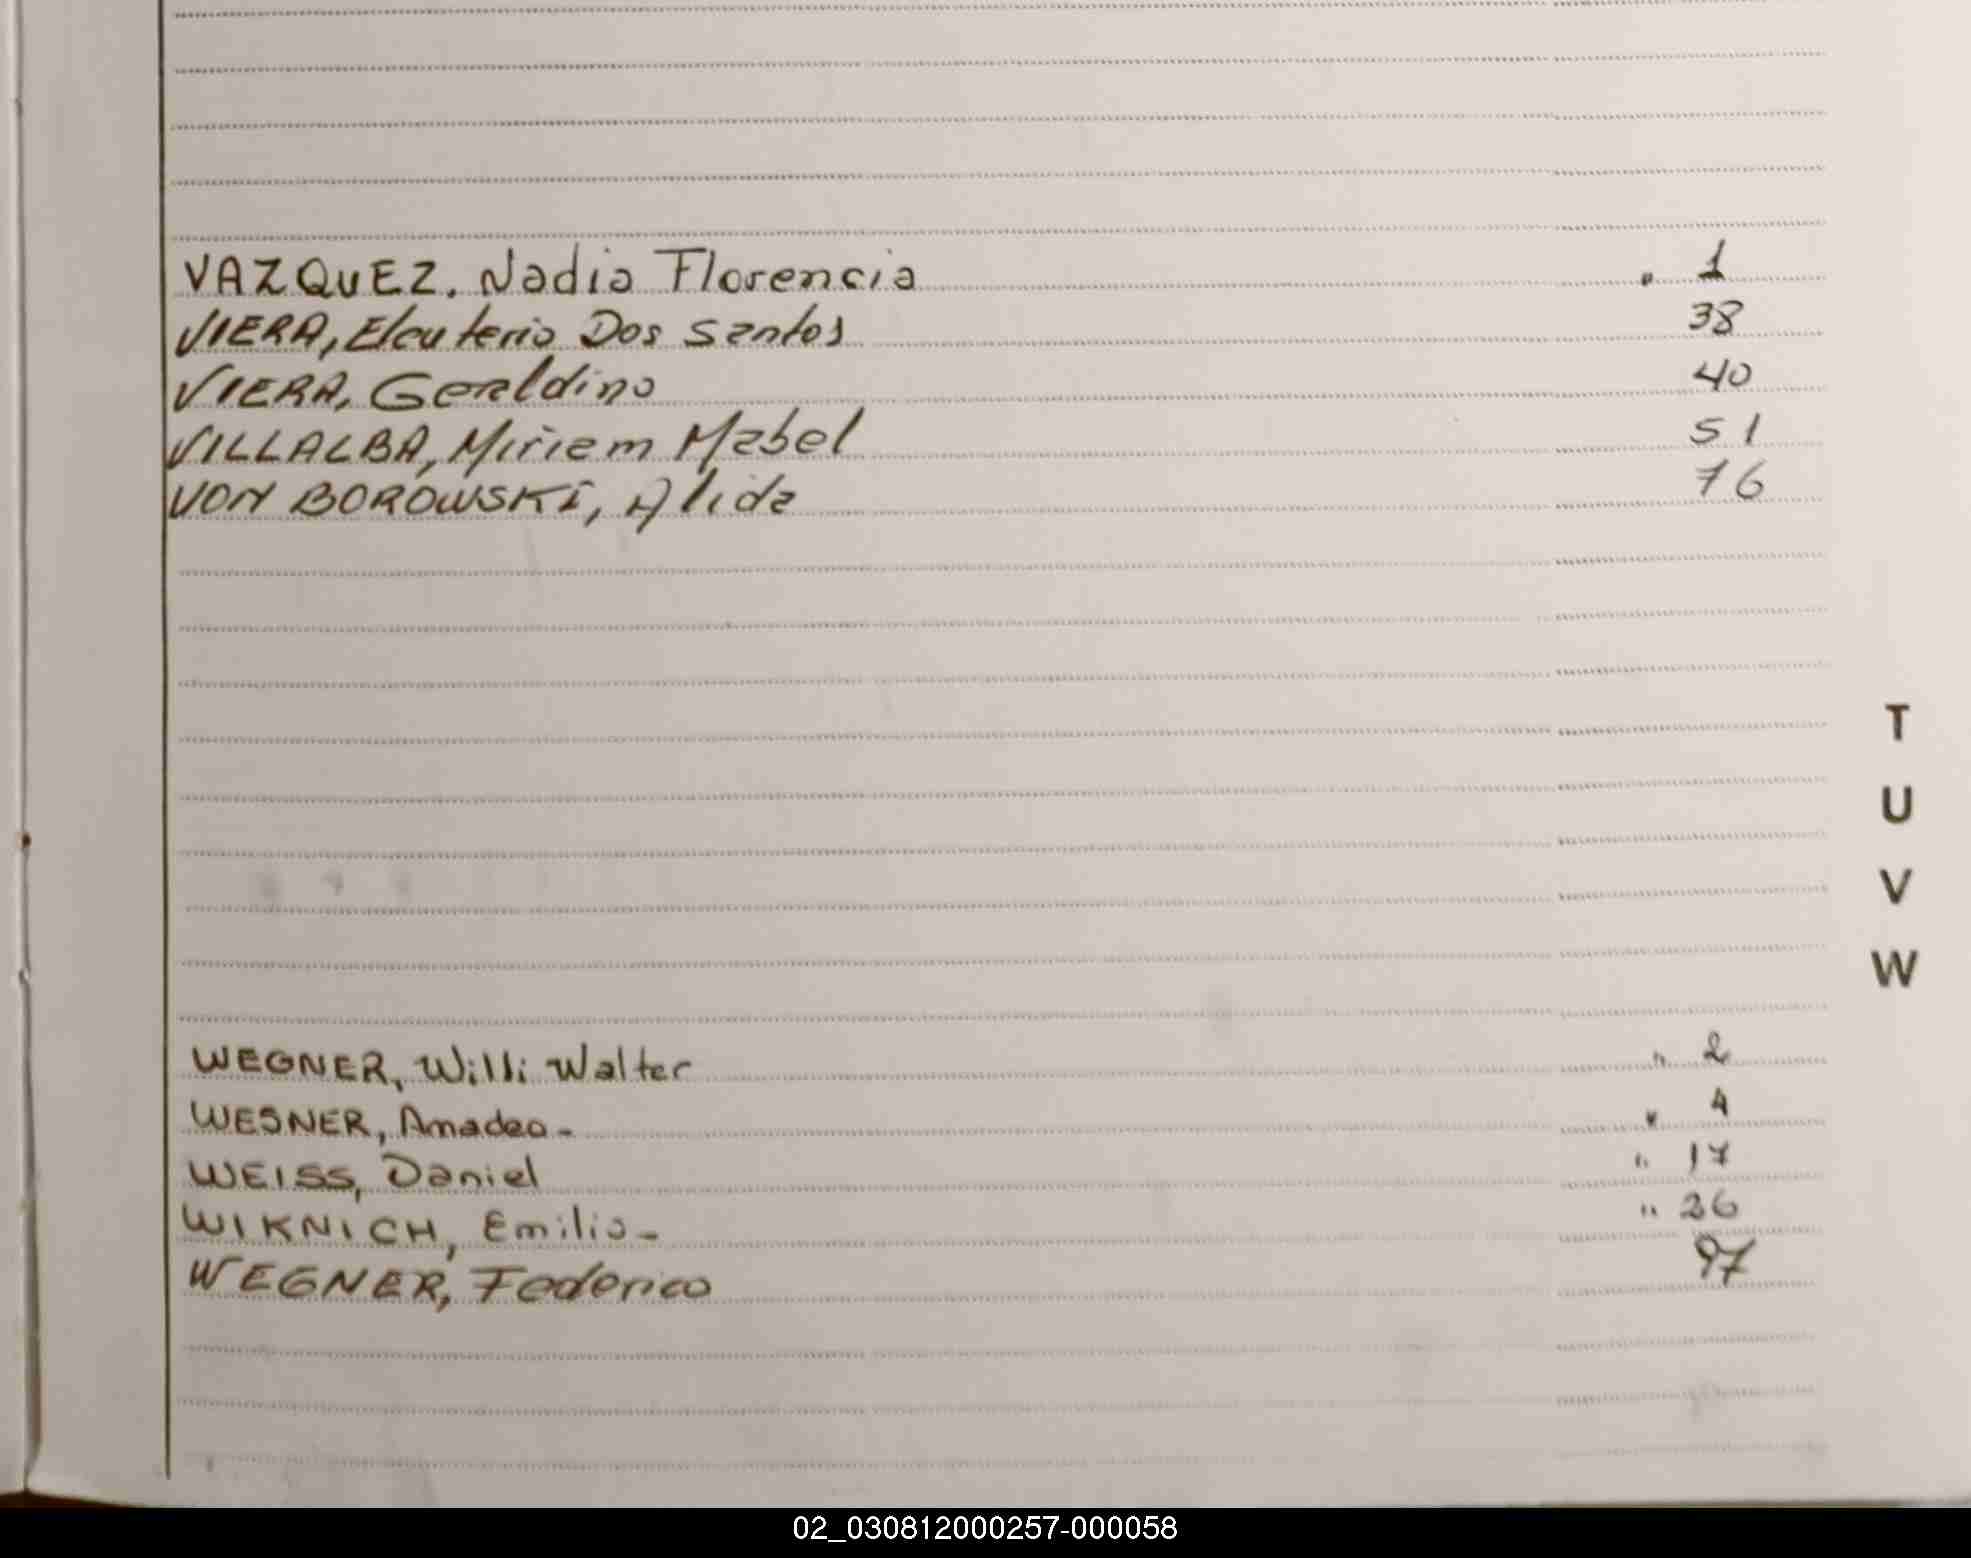 VAZQUEZ. Nadia Florencia " 1
VIERA, Eleuterio Dos Santos 38
VIERA, Geraldino 40
VILLALBA, Miriam Mabel 51
VON BOROWSKI, Alida 76
T
U
V
W
WEGNER, Willi Walter " 2
WESNER, Amadeo - " 4
WEISS, Daniel " 17
WIKNICH, Emilio - " 26
WEGNER, Federico 97
02_030812000257-000058